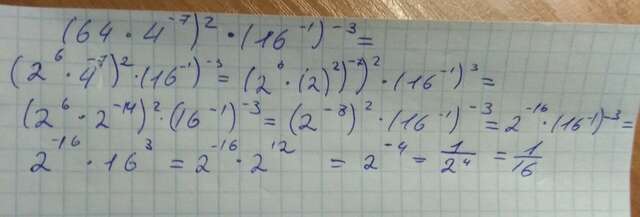 (64 · 4⁻⁷)² · (16⁻¹)⁻³ =
(2⁶ · 4⁻⁷)² · (16⁻¹)⁻³ = (2⁶ · (2)²)⁻⁷)² · (16⁻¹)³ =
(2⁶ · 2⁻¹⁴)² · (16⁻¹)⁻³ = (2⁻⁸)² · (16⁻¹)⁻³ = 2⁻¹⁶ · (16⁻¹)⁻³ =
2⁻¹⁶ · 16³ = 2⁻¹⁶ · 2¹² = 2⁻⁴ = 1/2⁴ = 1/16